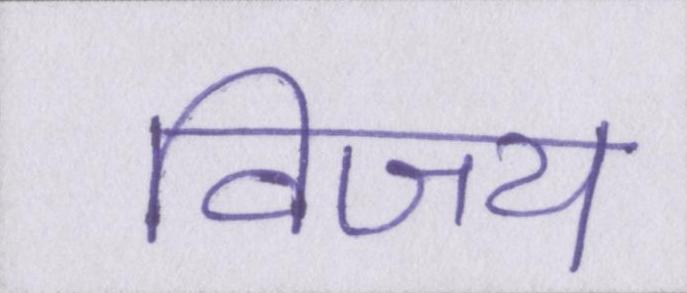 विजय